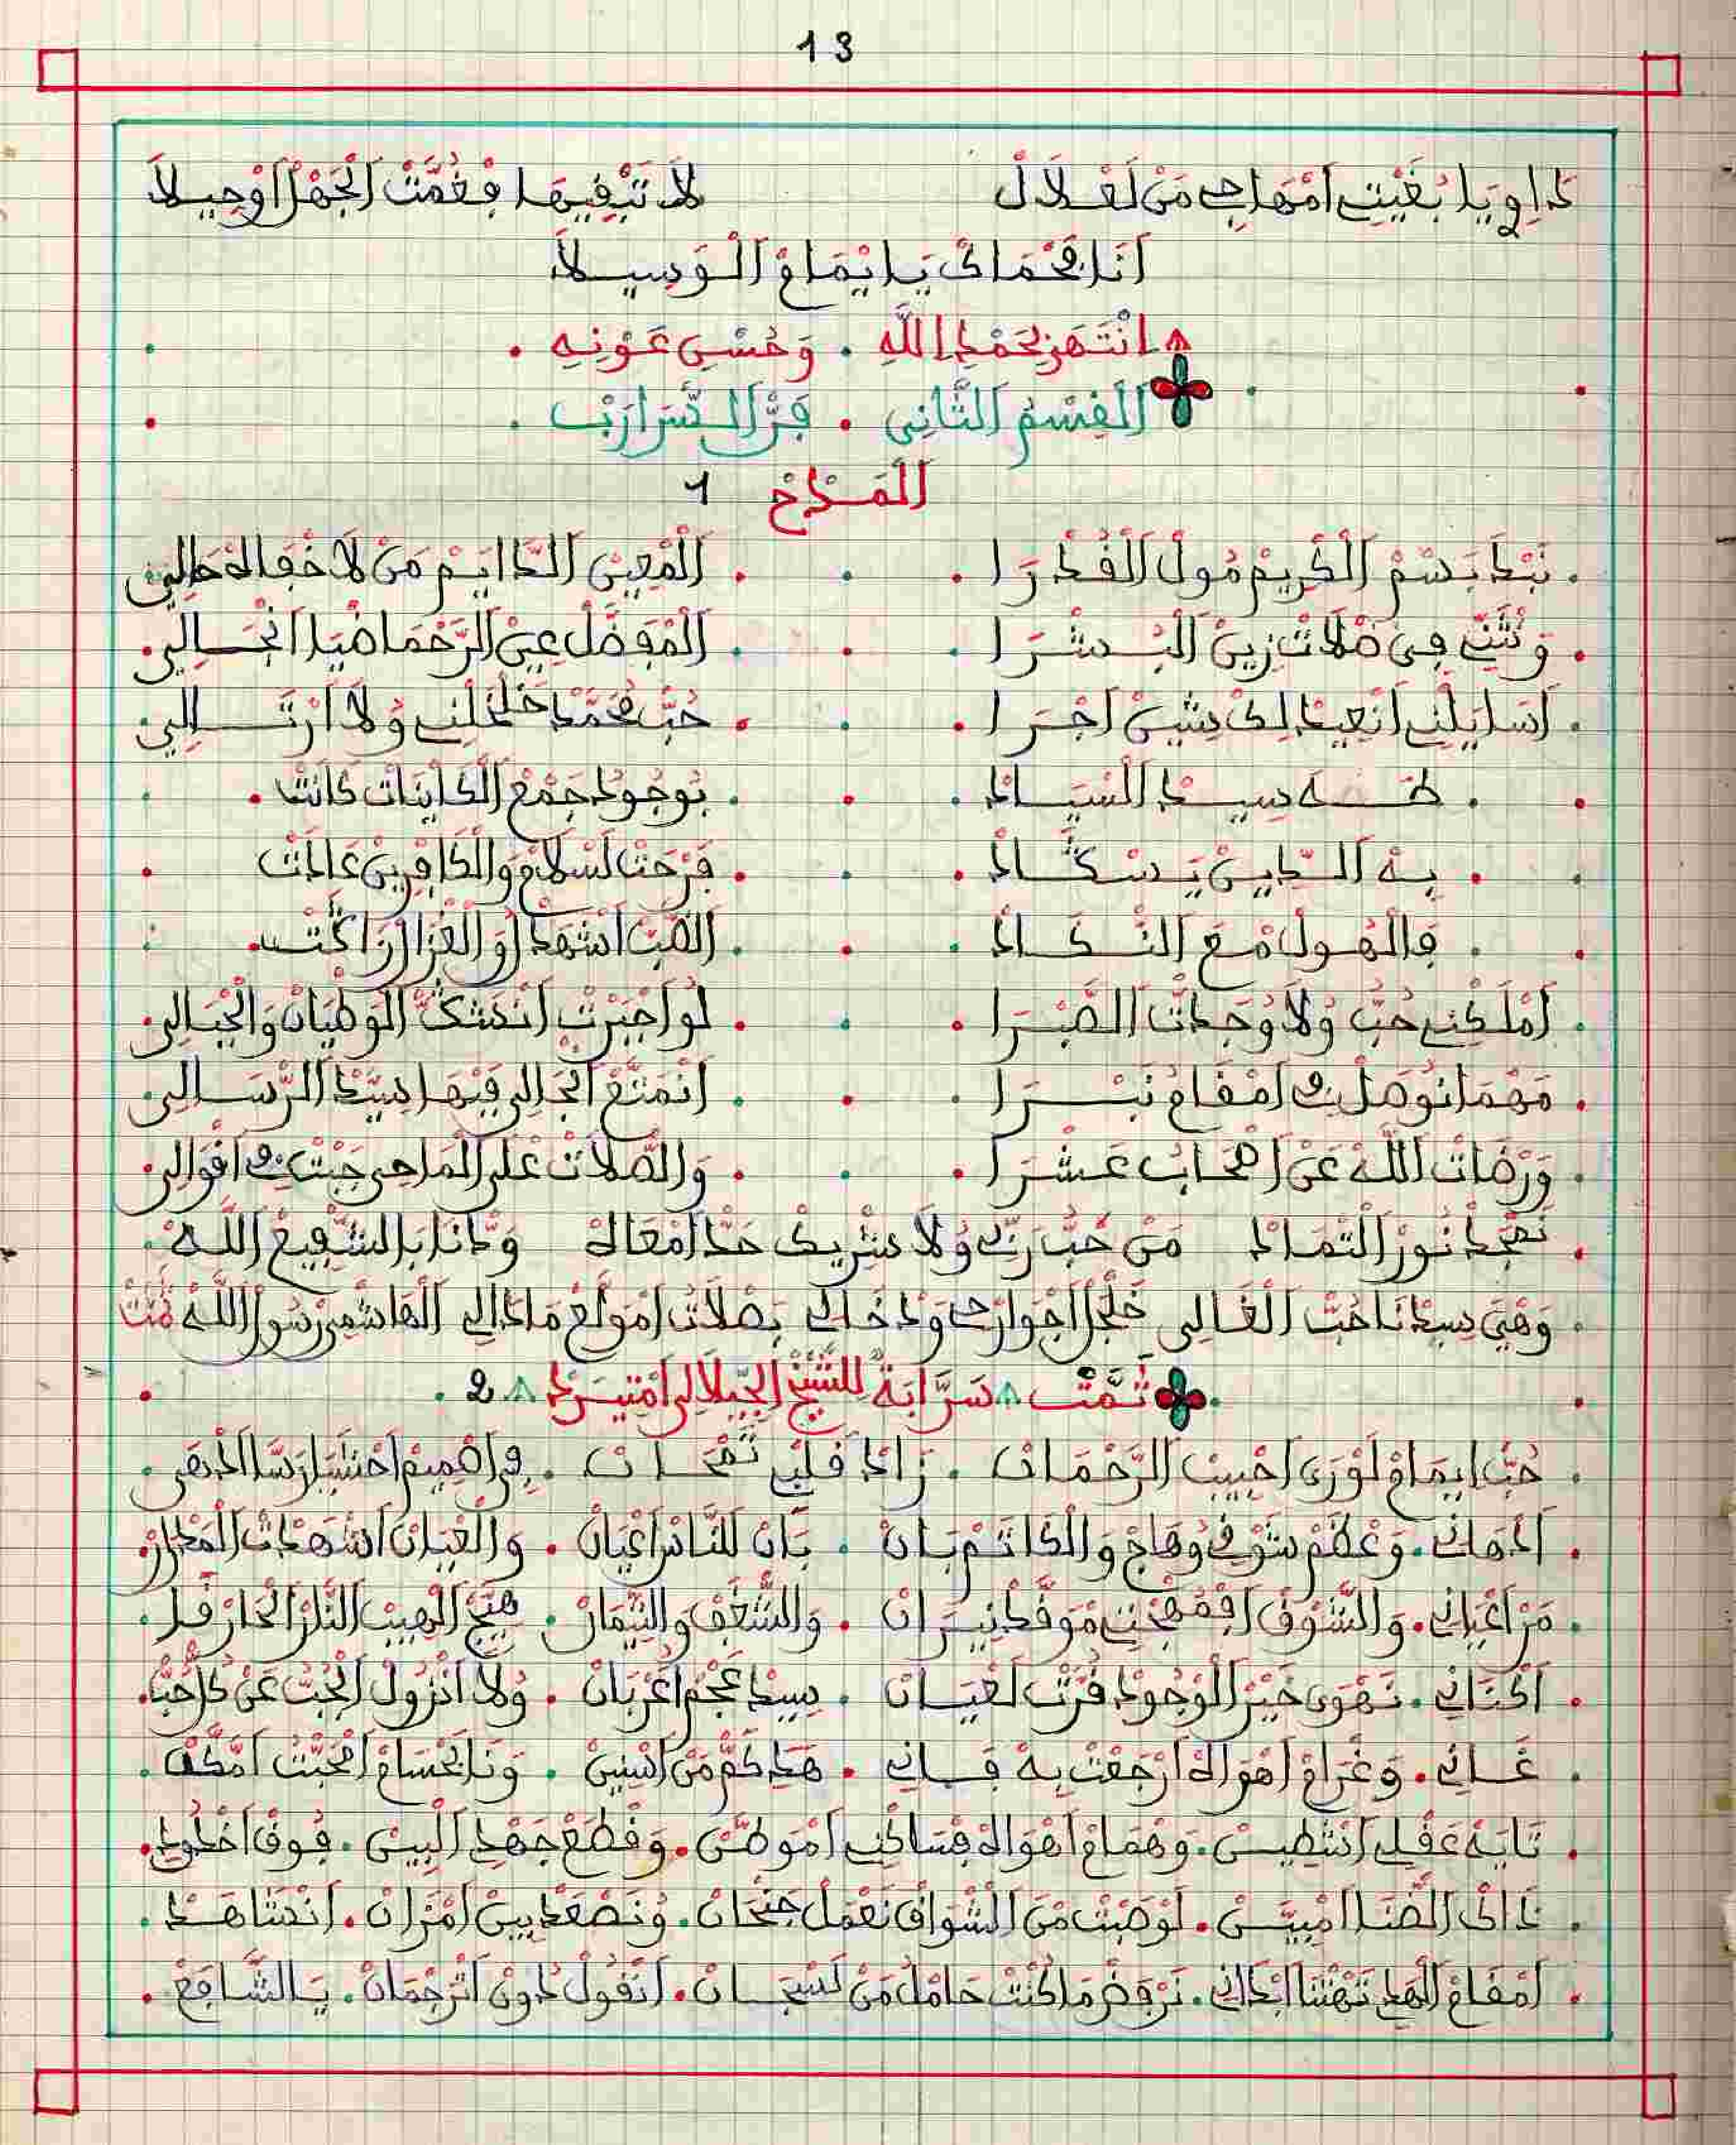 13
دَاوِ يَا بُغْيْتِي امْهَاجِي مَنْ لَعْلَالْ لَا تَبْقِيهَا فْغُمَّتْ الْجَهْلْ اوْحِيلَا
أَنَا فَحْمَاكْ يَا يْمَامْ الْوَسِيلَا
انْتَهَى بِحَمْدِ اللَّهِ . وَحُسْنِ عَوْنِهِ .
الْقِسْمُ الثَّانِي . فَنُّ السَّرَّارَبْ .
الْمَدْحْ 1
نَبْدَا بَسْمْ الْكْرِيمْ مُولْ الْقُدْرَا . الْمْعِينْ الدَّايَمْ مَنْ لَا خْفَالَهْ حَالِي
وَنْثَنِّي فِي صْلَاتْ زِينْ الْبُشْرَا . الْمْفَضَّلْ عِينْ الرَّحْمَا ضْيَا انْجَالِي
اسَايَلْنِي انْعِيدْ لِكْ شِينْ اجْرَا . حُبّْ مُحَمَّدْ خَلْخَلْنِي وُلَا ارْتَى لِي
طَهَ سِيدْ السْيَادْ . بُوجُودُ جَمْعْ الْكَايْنَاتْ كَانَتْ
بِهْ الدِّينْ يَسْتْݣَادْ . فَرْحَتْ لَسْلَامْ وَالْكَافْرِينْ عَادَتْ
فَالْهُولْ مْعَ النْݣَادْ . الضَّبّْ اشْهَدْ لُو وَالْغْزَالْ زَاݣَتْ
امْلَكْنِي حُبُّ وُلَا وْجَدْتْ الصَّبْرَا . لُو اجْبَرْتْ انْشَݣّْ الْوَطْيَانْ وَالْجْبَالِي
مَهْمَا نُوصَلْ فِي امْقَامْ نَبْرَا . انْمَتَّعْ انْجَالِي فِيهَا سِيدْ الرّْسَالِي
وَرْضَاتْ اللَّهْ عَنْ اصْحَابُ عَشْرَا . وَالصّْلَاتْ عْلَى الْمَاحِي جَبْتْ فِي اقْوَالِي
نَمْجَدْ نُورْ التْمَادْ مَنْ حَبُّ رَبِّي وُلَا شْرِيكْ حَدّْ امْعَاهْ وَدَّانَا بَالشّْفِيعْ اللَّهْ
وَهْيَ سِيدْنَا حُبّْ الْغَالِي خَلْخَلْ اجْوَارْحِي وَدْخَالِي بَصْلَاتُ امُولَعْ مَادَالِي الْهَاشْمِي رْسُولْ اللَّهْ تمت
تَمَّتْ سَرَّابَةٌ لِلشَّيْخْ الْجِّيلَالِي امْتِيرَدْ 2
حُبّْ ايمَامْ لَوْرَى احْبِيبْ الرَّحْمَانْ . زَادْ قَلْبِي تَمْحَانْ . فِي اصْمِيمْ احْشَايَا رَسَّا ادْهَى
ادْهَانِي . وَعْظَمْ شُوقِي وُهَاجْ وَالْكَاتَمْ بَانْ . بَانْ لَلنَّاسْ اعْيَانْ . وَالْعْيَانْ اشْهَدَاتْ الْمَدْرَارْ
مَنْ اعْيَانِي . وَالشُّوقْ افْمُهْجْتِي مْوَقَّدْ نِيرَانْ . وَالشّْغَفْ وَالتِّيمَانْ . هَيَّجْ الْهِيبْ النَّارْ الْحَارْقَا
اكْنَانِي . نَهْوَى خَيْرْ الْوُجُودْ قُرَّتْ لَعْيَانْ . سِيدْ عَجْمْ اعْرْبَانْ . وُلَا انْزُولْ الْحُبُّ عَنْ كُلّْ حُبّْ
غَانِي . وَغْرَامْ اهْوَاهْ ارْجَعْتْ بِهْ فَانِي . هَادْ كَمّْ مَنْ اسْنِينْ . وَنَا بَحْسَامْ امْحَبْتُ امَّكَّنْ
تَايَهْ عَقْلِي انْشْطِينْ . وَهْمَامْ اهْوَاهْ فْسَاكْنِي امْوَطَّنْ . وَقْطَعْ جَهْدْ الْبِينْ . فُوقْ اخْدُودْ
دَاكْ الضّْنَا امْبَيَّنْ . لَوْ صَبْتْ مْنَ الشْوَاقْ نَعْمَلْ جَنْحَانْ . وُنَصْعَدْ بِينْ امْزَانْ . انْشَاهَدْ
امْقَامْ الْهَادِي نَهْنَا ابْدَانِي . نَرْفَضْ مَا كُنْتْ حَامْلُ مَنْ لَشْجَانْ . انْقُولْ دُونْ اتَرْجْمَانْ . يَا الشَّافَعْ